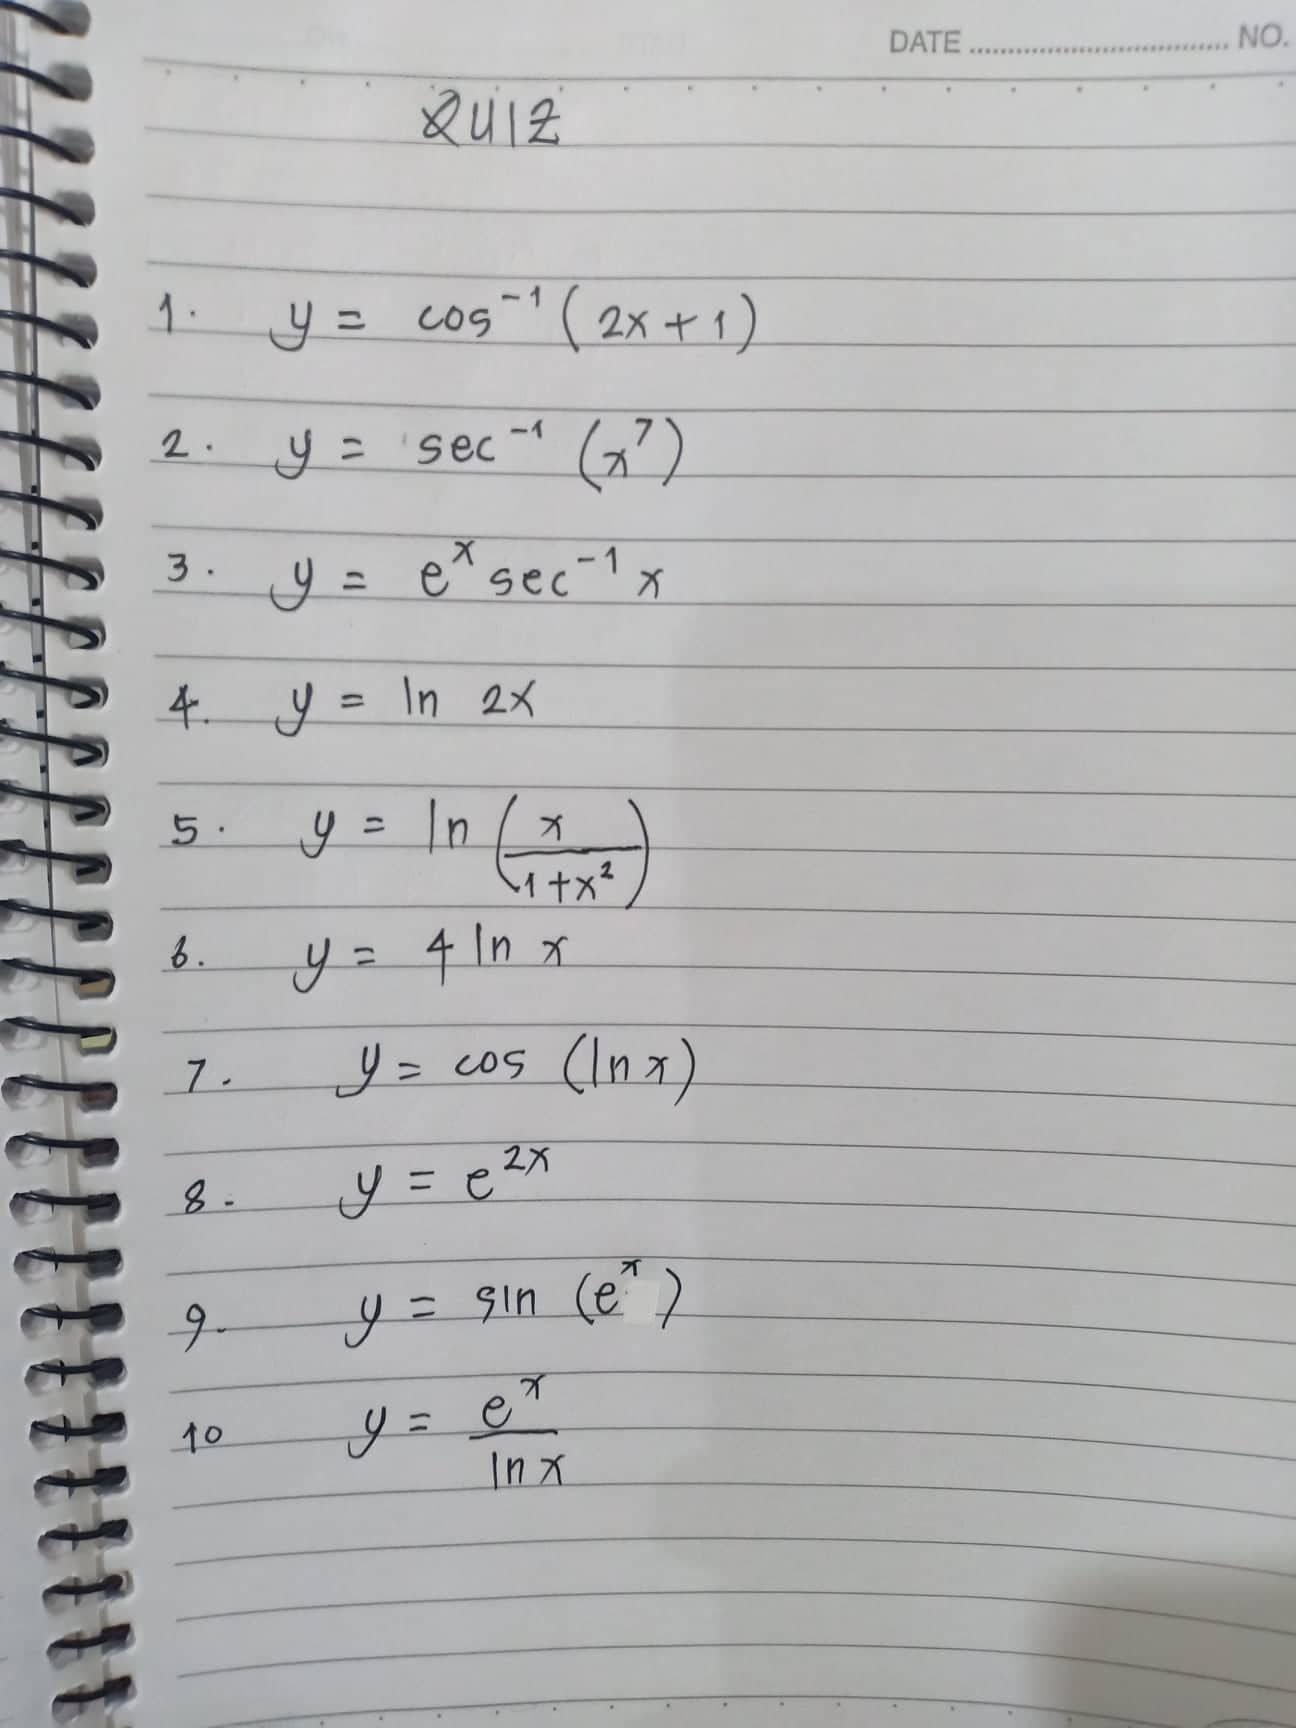 DATE ................................ NO.
QUIZ
1. y = cos⁻¹ (2x + 1)
2. y = sec⁻¹ (x⁷)
3. y = eˣ sec⁻¹ x
4. y = ln 2x
5. y = ln (x / 1+x²)
6. y = 4 ln x
7. y = cos (ln x)
8. y = e²ˣ
9. y = sin (eˣ)
10 y = eˣ / ln x